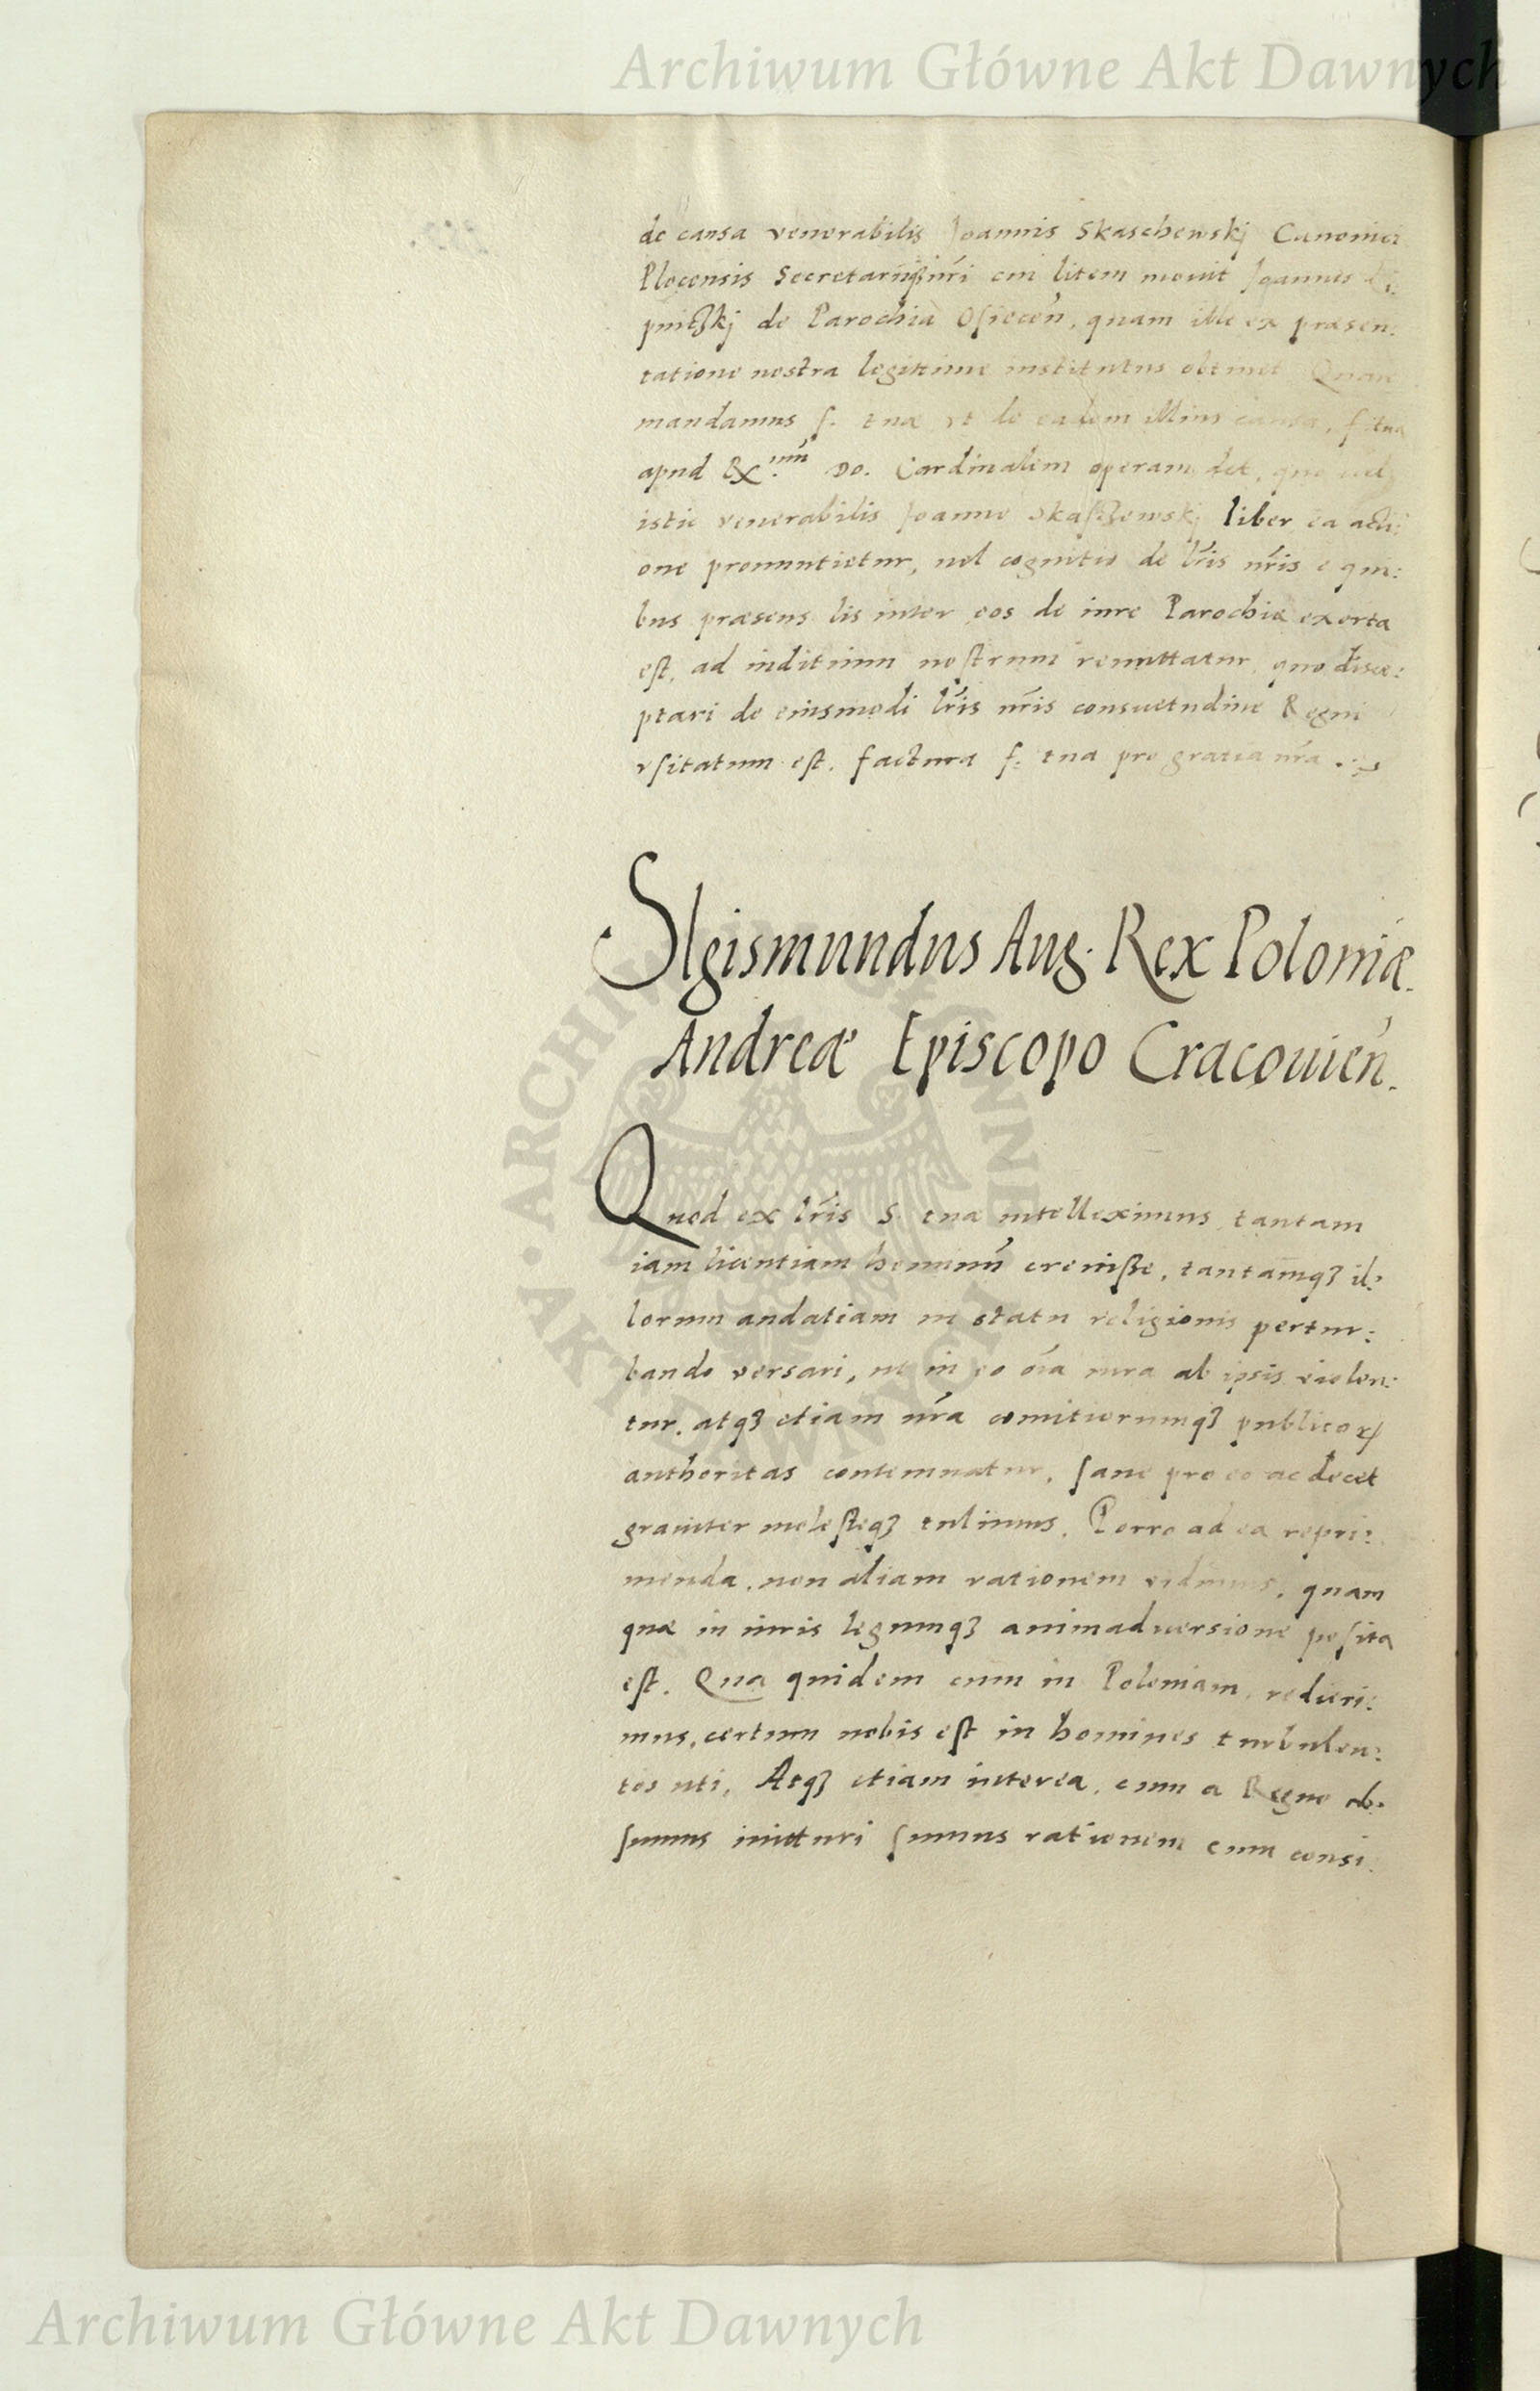 Archiwum Główne Akt Dawnych
de causa venerabilis Joannis Skaschewskj Canonici
Plocensis Secretariiq3 nr̃i cui litem mouit Joannes
pnic3kj de Parochia Osiecen̄, quam ille ex præsen:
tatione nostra legittime institutus obtinet. Quare
mandamus S. tuæ vt de eadem illius causa, S. tua
apud Rx.mũ Do. Cardinalem operam det, quo uel
istic venerabilis Joanne Skas3ewskj liber ea acti:
one pronuntietur, uel cognitio de lr̃is nr̃is e qui:
bus præsens lis inter eos de iure Parochiæ exorta
est, ad iuditium nostrum remittatur, quo disce:
ptari de eiusmodi lr̃is nr̃is consuetudine Regni
vsitatum est. factura S: tua pro gratia nr̃a
SIgismundus Aug. Rex Poloniæ.
Andreæ Episcopo Cracouien̄.
Quod ex lr̃is S. tuæ intelleximus, tantam
iam licentiam hominũ creuisse, tantamq3 il:
lorum audatiam in statu religionis pertur:
bando versari, ut in eo oĩa iura ab ipsis violen:
tur, atq3 etiam nr̃a comitiorumq3 publicoꝝ
authoritas contemnatur, sane pro eo ac decet
grauiter molesteq3 tulimus. Porro ad ea repri:
menda, non aliam rationem vidimus, quam
quæ in iuris legumq3 animaduersione posita
est. Qua quidem cum in Poloniam, redieri:
mus, certum nobis est in homines turbulen:
tos uti, Atq3 etiam interea, cum a Regno ab:
sumus inituri sumus rationem cum consi:
ARCHIWUM GŁÓWNE · AKT DAWNYCH ·
Archiwum Główne Akt Dawnych